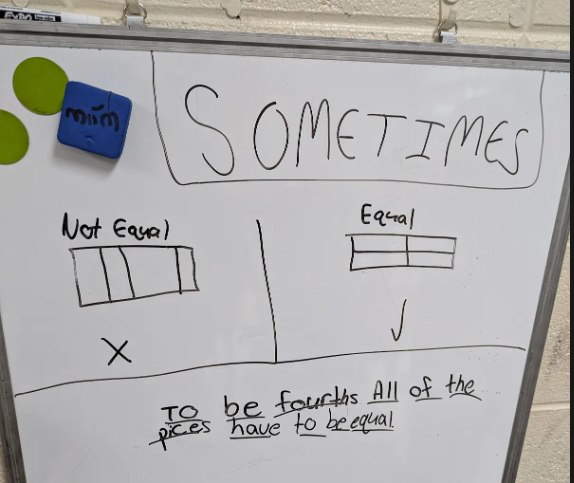 EXPO
SOMETIMES
Not Equal
Equal
TO be fourths All of the
pices have to be equal.